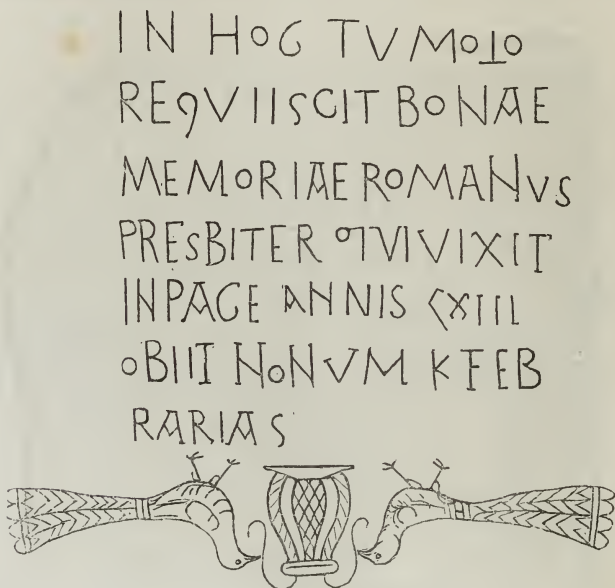 IN HOC TVMOLO
REQVIISCIT BONAE
MEMORIAE ROMANVS
PRESBITER QVI VIXIT
IN PACE ANNIS LXIII
OBIIT NONVM K FEB
RARIAS